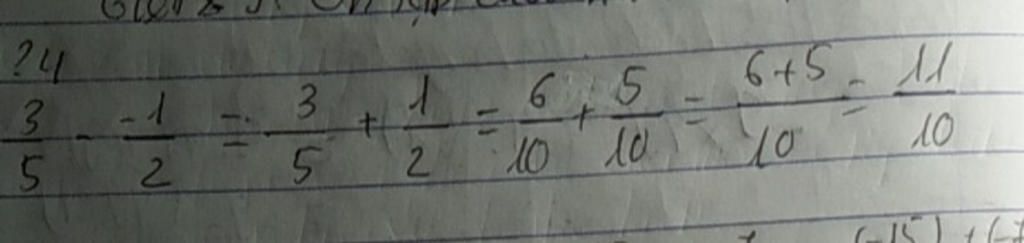 ?4
3/5 - -1/2 = 3/5 + 1/2 = 6/10 + 5/10 = 6+5/10 = 11/10
(-15) + (-7